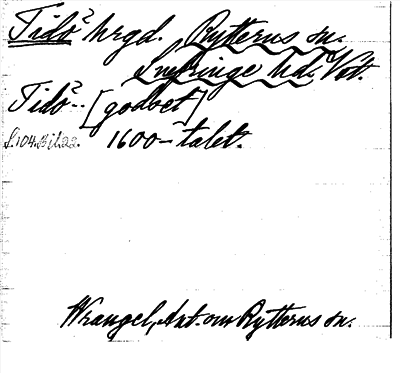 Tidö² hrgd. Rytterns sn.
Snefringe hd. Vst.
Tidö²- [godset]
S. 104. Bil. 22. 1600-talet.
Wrangel, Ant. om Rytterns sn.